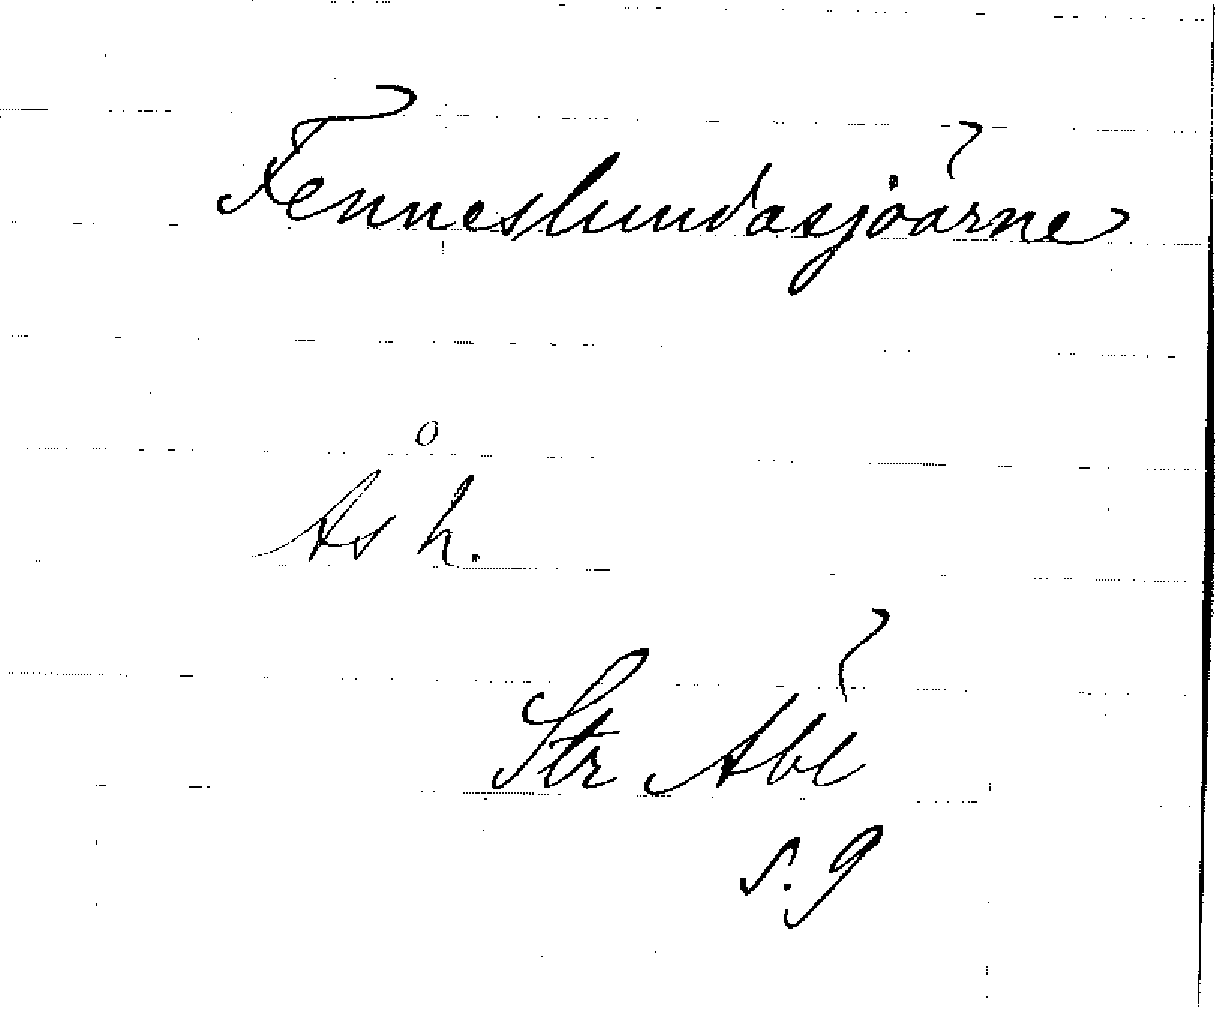 Fenneslundasjöarne
Ås h.
Str Äbl
s. 9